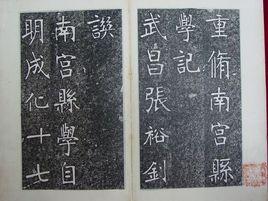 重脩南宫縣
學記
武昌張裕釗
譔
南宫縣學自
明成化十七